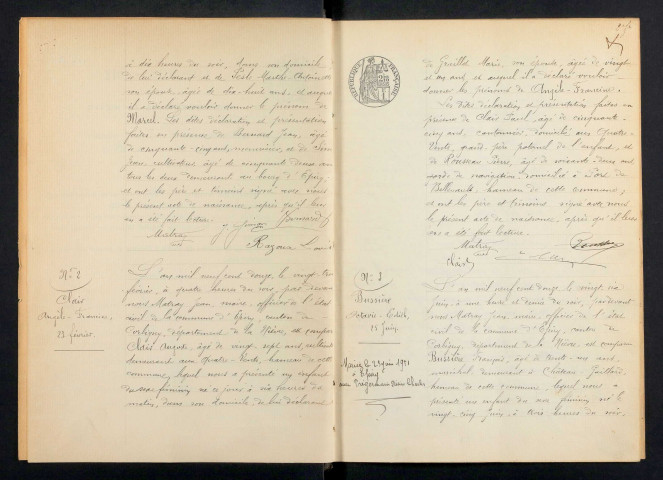 à dix heures du soir, dans son domicile
de lui déclarant, et de
son épouse, âgée de dix-huit ans, et auquel
il a déclaré vouloir donner le prénom de
Marcel. Les dites déclaration et présentation
faites en présence de Bernard Jean, âgé
de cinquante-cinq ans, et de
Jean, cultivateur, âgé de cinquante deux ans
tous les deux demeurant au bourg d'Epiry,
et ont les père et témoins signé avec nous
le présent acte de naissance, après qu'il leur
en a été fait lecture.
Matray
N° 2
Clais
Angèle-Francine,
22 février.
L'an mil neuf cent douze, le vingt-trois
février, à quatre heures du soir, par devant
nous Matray Jean, maire, officier de l'état
civil de la commune d'Epiry, canton de
Corbigny, département de la Nièvre, est comparu
Clais âgé de vingt-sept ans,
demeurant aux Quatre-Vents, hameau de cette
commune, lequel nous a présenté un enfant
du sexe féminin né ce jour à six heures du
matin, dans son domicile de lui déclarant
de Marie, son épouse, âgée de vingt-
et un ans, et auquel il a déclaré vouloir
donner les prénoms de Angèle-Francine.
Les dites déclaration et présentation faites en
présence de Clais âgé de cinquante-
cinq ans, cantonnier, domicilié aux Quatre-
Vents, grand-père paternel de l'enfant, et
de Rousseau Pierre, âgé de soixante-deux ans
garde de navigation, domicilié à Port de
hameau de cette commune,
et ont les père et témoins signé avec nous
le présent acte de naissance, après qu'il leur
en a été fait lecture.
Matray
Clais
N° 3
Bussière
Octavie-Edith,
25 Juin.
L'an mil neuf cent douze, le vingt-six
juin, à une heure et demie du soir, par devant
nous Matray Jean, maire, officier de l'état
civil de la commune d'Epiry, canton de
Corbigny, département de la Nièvre, est comparu
Bussière François, âgé de trente-un ans,
maréchal, demeurant à Château Gaillard,
hameau de cette commune, lequel nous a
présenté un enfant du sexe féminin né le
vingt-cinq juin, à trois heures du soir,
Mariée le 2 juin 1931
à Epiry
avec